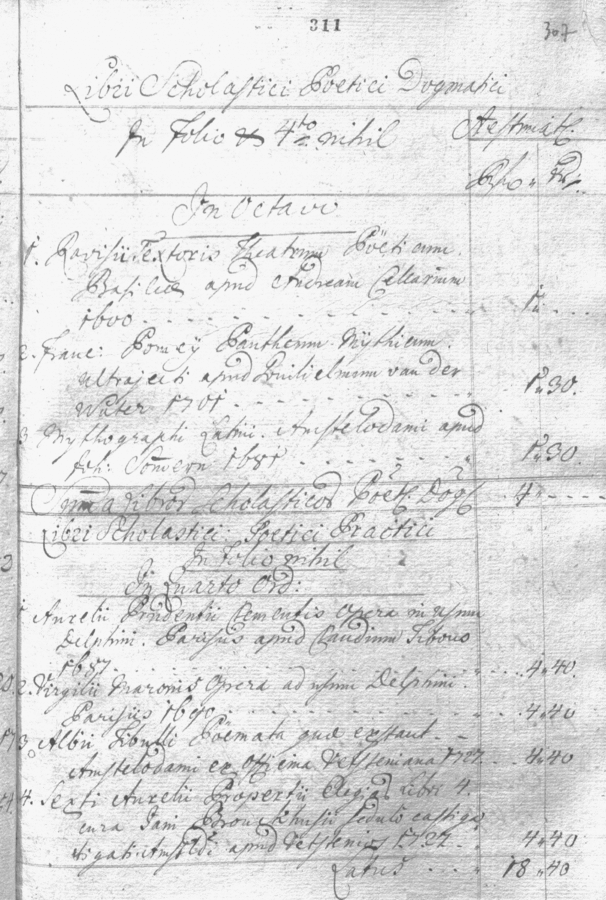 311
307
Libri Scholastici Poetici Dogmatici
In Folio & 4to nihil
Aestimat.
Rfl. Xr.
In Octavo
1. Ravisii Textoris Theatrum Poëticum.
Basileae apud Andream Cellarium
1600 . . . 1 " . . .
2. Franc: Pomey Pantheum Mythicum.
Ultrajecti apud Guilielmum van der
Water 1701 . . . 1 " 30.
3. Mythographi Latini. Amstelodami apud
Joh: Someren 1681 . . . 1 " 30.
Summa Libror Scholasticor Poët. Dog. 4 " - - - -
Libri Scholastici Poetici Practici
In Folio nihil
In Quarto Ord:
1. Aurelii Prudentii Clementis Opera in usum
Delphini. Parisiis apud Claudium Tibous
1687. . . . 4 " 40.
2. Virgilii Maronis Opera ad usum Delphini
Parisiis 1690 . . . 4 " 40
3. Albii Tibulli Poemata quae extant - -
Amstelodami ex Officina Vetsteniana 1727. . . 4 " 40
4. Sexti Aurelii Propertii Elegiar Libri 4.
cura Jani Broukhusii sedulo castiga
tigati Amstelod. apud Vetstenios 1727. . . 4 " 40
Latus . . . 18 " 40